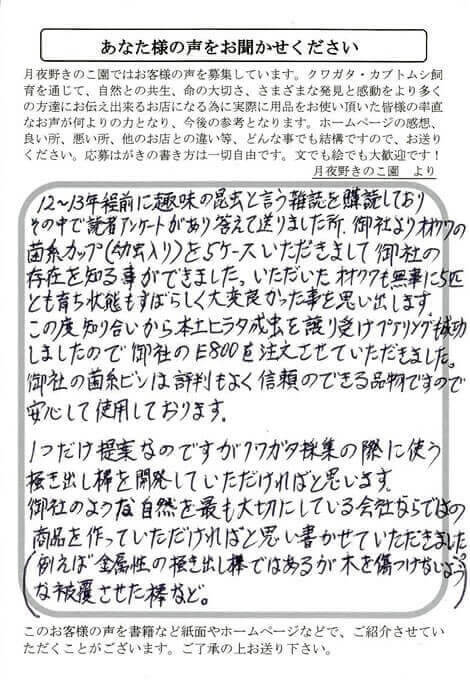 あなた様の声をお聞かせください
月夜野きのこ園ではお客様の声を募集しています。クワガタ・カブトムシ飼
育を通じて、自然との共生、命の大切さ、さまざまな発見と感動をより多く
の方達にお伝え出来るお店になる為に実際に用品をお使い頂いた皆様の率直
なお声が何よりの力となり、今後の参考となります。ホームページの感想、
良い所、悪い所、他のお店との違い等、どんな事でも結構ですので、お送り
ください。応募はがきの書き方は一切自由です。文でも絵でも大歓迎です！
月夜野きのこ園 より
12～13年程前に趣味の昆虫と言う雑誌を購読しており
その中で読者アンケートがあり答えて送りました所、御社よりオオクワの
菌糸カップ(幼虫入り)を5ケースいただきまして御社の
存在を知る事ができました。いただいたオオクワも無事に5匹
とも育ち状態もすばらしく大変良かった事を思い出します。
この度知り合いから本土ヒラタ成虫を譲り受けペアリングも成功
しましたので御社のE800を注文させていただきました。
御社の菌糸ビンは評判もよく信頼のできる品物ですので
安心して使用しております。
1つだけ提案なのですがクワガタ採集の際に使う
掻き出し棒を開発していただければと思います。
御社のような自然を最も大切にしている会社ならではの
商品を作っていただければと思い書かせていただきました
(例えば金属性の掻き出し棒ではあるが木を傷つけないよう
な被覆させた棒など。
このお客様の声を書籍など紙面やホームページなどで、ご紹介させてい
ただくことがございます。ご了承の上お送り下さい。